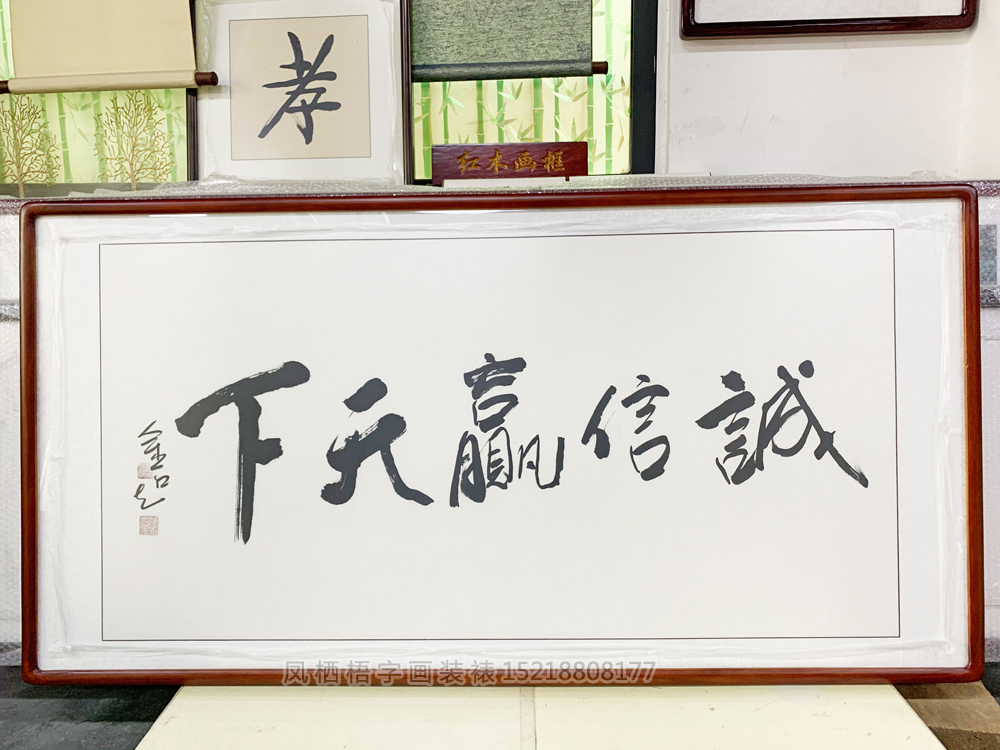 孝
红木画框
誠信贏天下
凤栖梧字画装裱15218808177